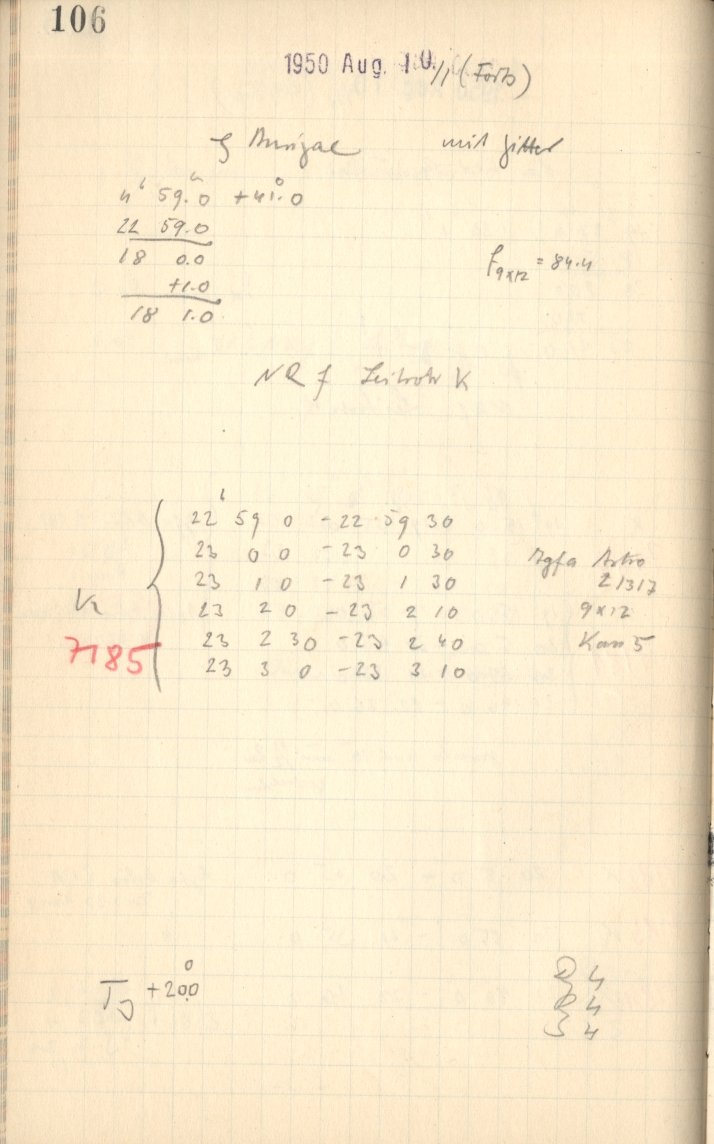 106
1950 Aug. 10./1 (Forts)
ζ Aurigae mit Gitter
4ʰ 59.ᵐ0 +41.°0
22 59.0
18 0.0
f9x12 = 84.4
+1.0
18 1.0
f Leitrohr K
22ʰ 59 0 - 22 59 30
23 0 0 - 23 0 30
Agfa Astro
23 1 0 - 23 1 30
21317
K
23 2 0 - 23 2 10
9x12
7185
23 2 30 - 23 2 40
Kass 5
23 3 0 - 23 3 10
+20.°0
4
4
4